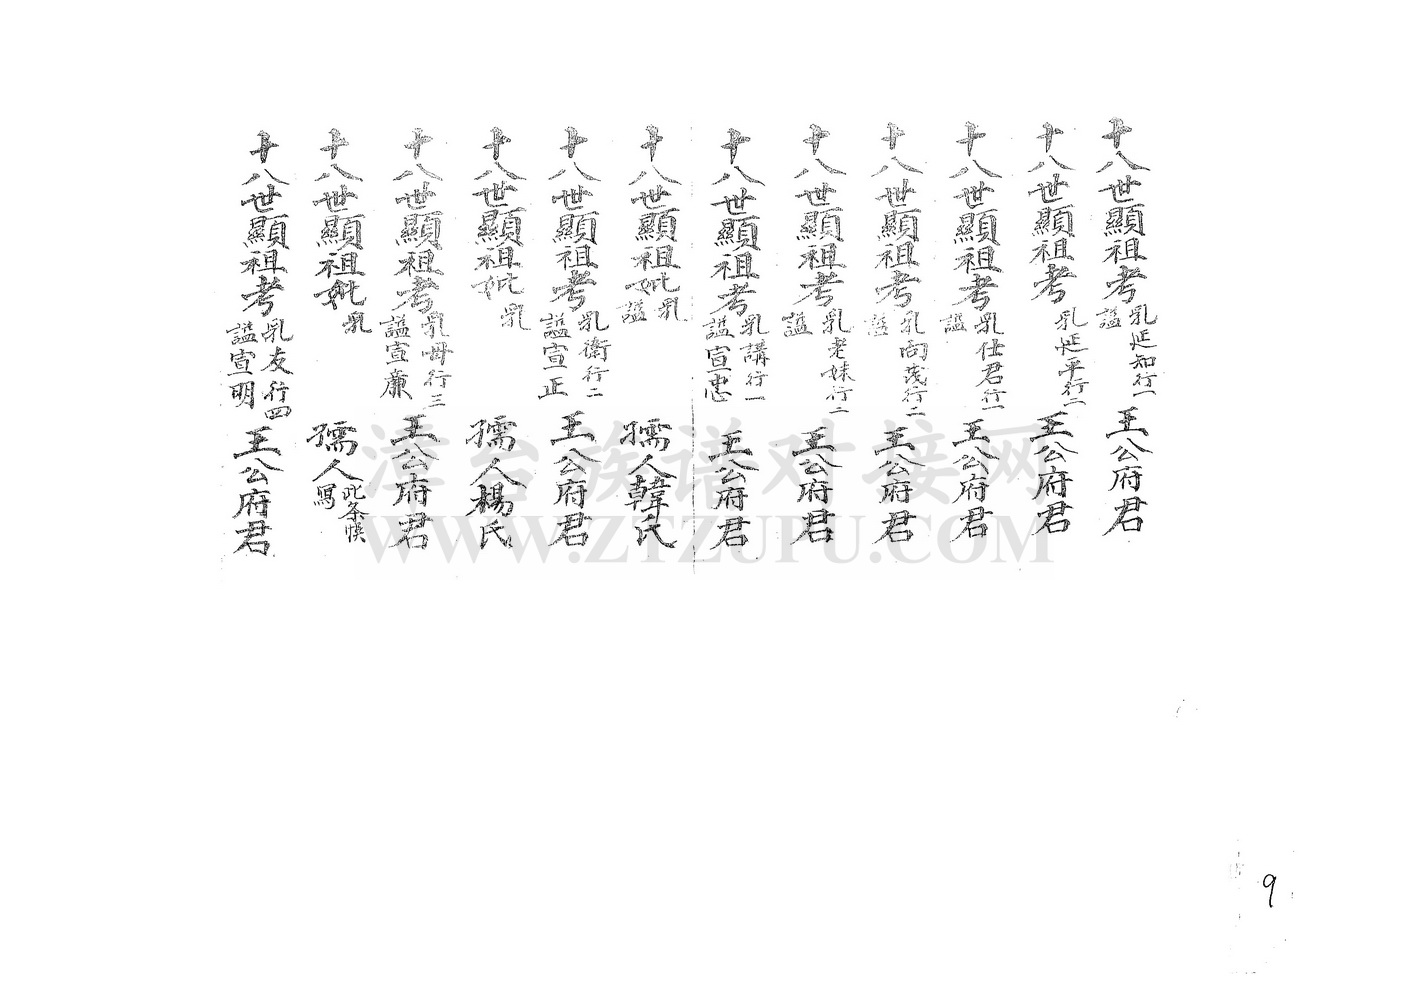 十八世顯祖考乳延知行一諡王公府君
十八世顯祖考乳延平行二王公府君
十八世顯祖考乳仕君行一諡王公府君
十八世顯祖考乳尚茂行二諡王公府君
十八世顯祖考乳老妹行二諡王公府君
十八世顯祖考乳講行一諡宣忠王公府君
十八世顯祖妣乳諡孺人韓氏
十八世顯祖考乳衛行二諡宣正王公府君
十八世顯祖妣乳孺人楊氏
十八世顯祖考乳毋行三諡宣廉王公府君
十八世顯祖妣乳孺人此条悮寫
十八世顯祖考乳友行四諡宣明王公府君
漳台族谱对接网
WWW.ZTZUPU.COM
9